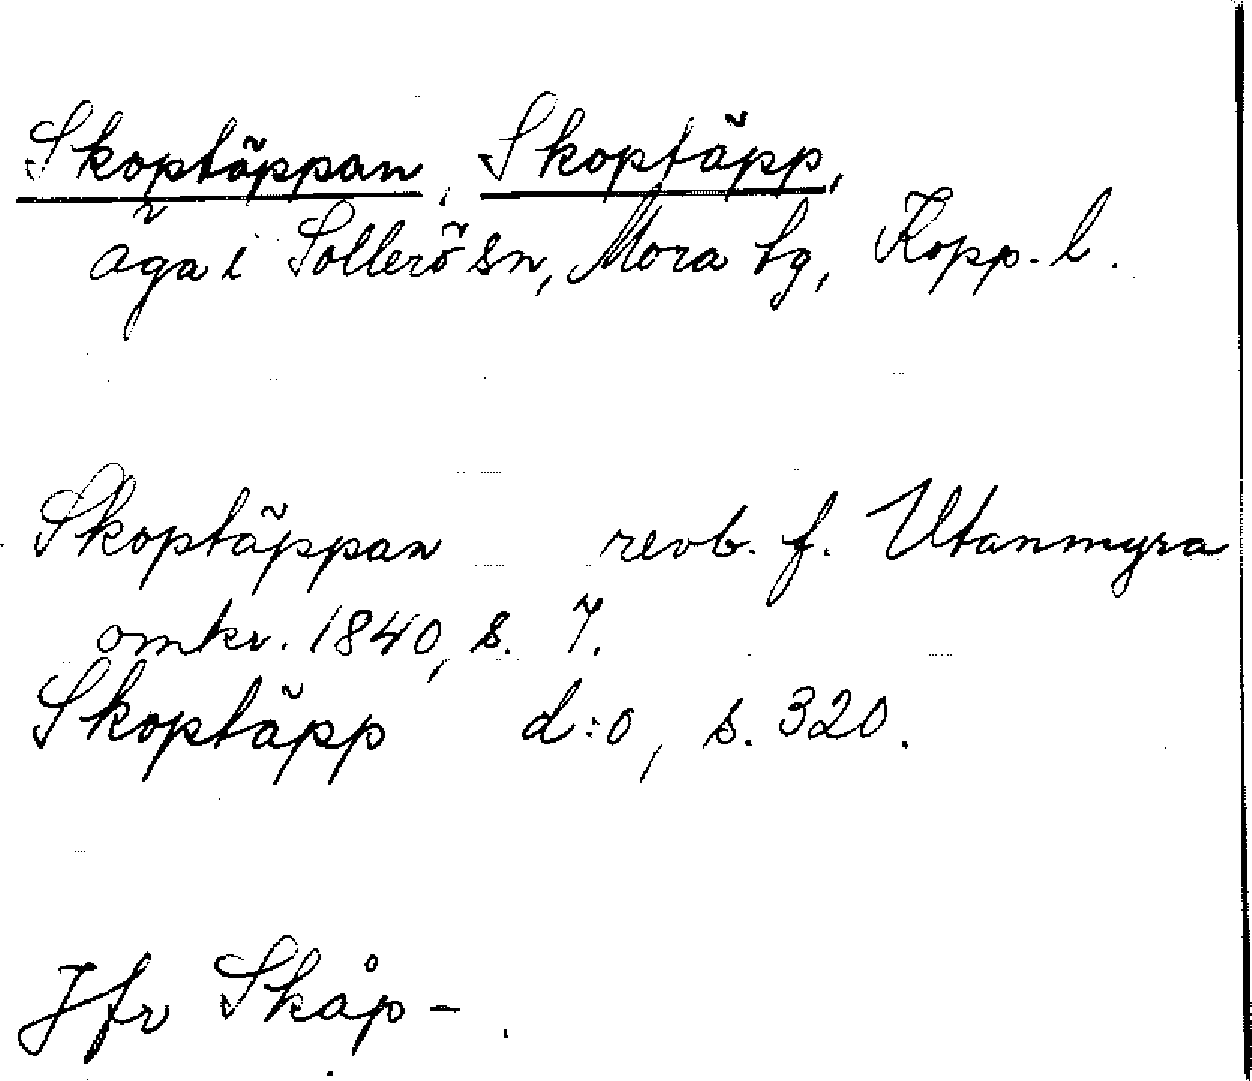 Skoptäppan, Skoptäpp,
äga i Sollerö sn, Mora tg, Kopp. l.
Skoptäppan revb. f. Utanmyra
omkr. 1840, s. 7.
Skoptäpp d:o, s. 320.
Jfr Skåp-.